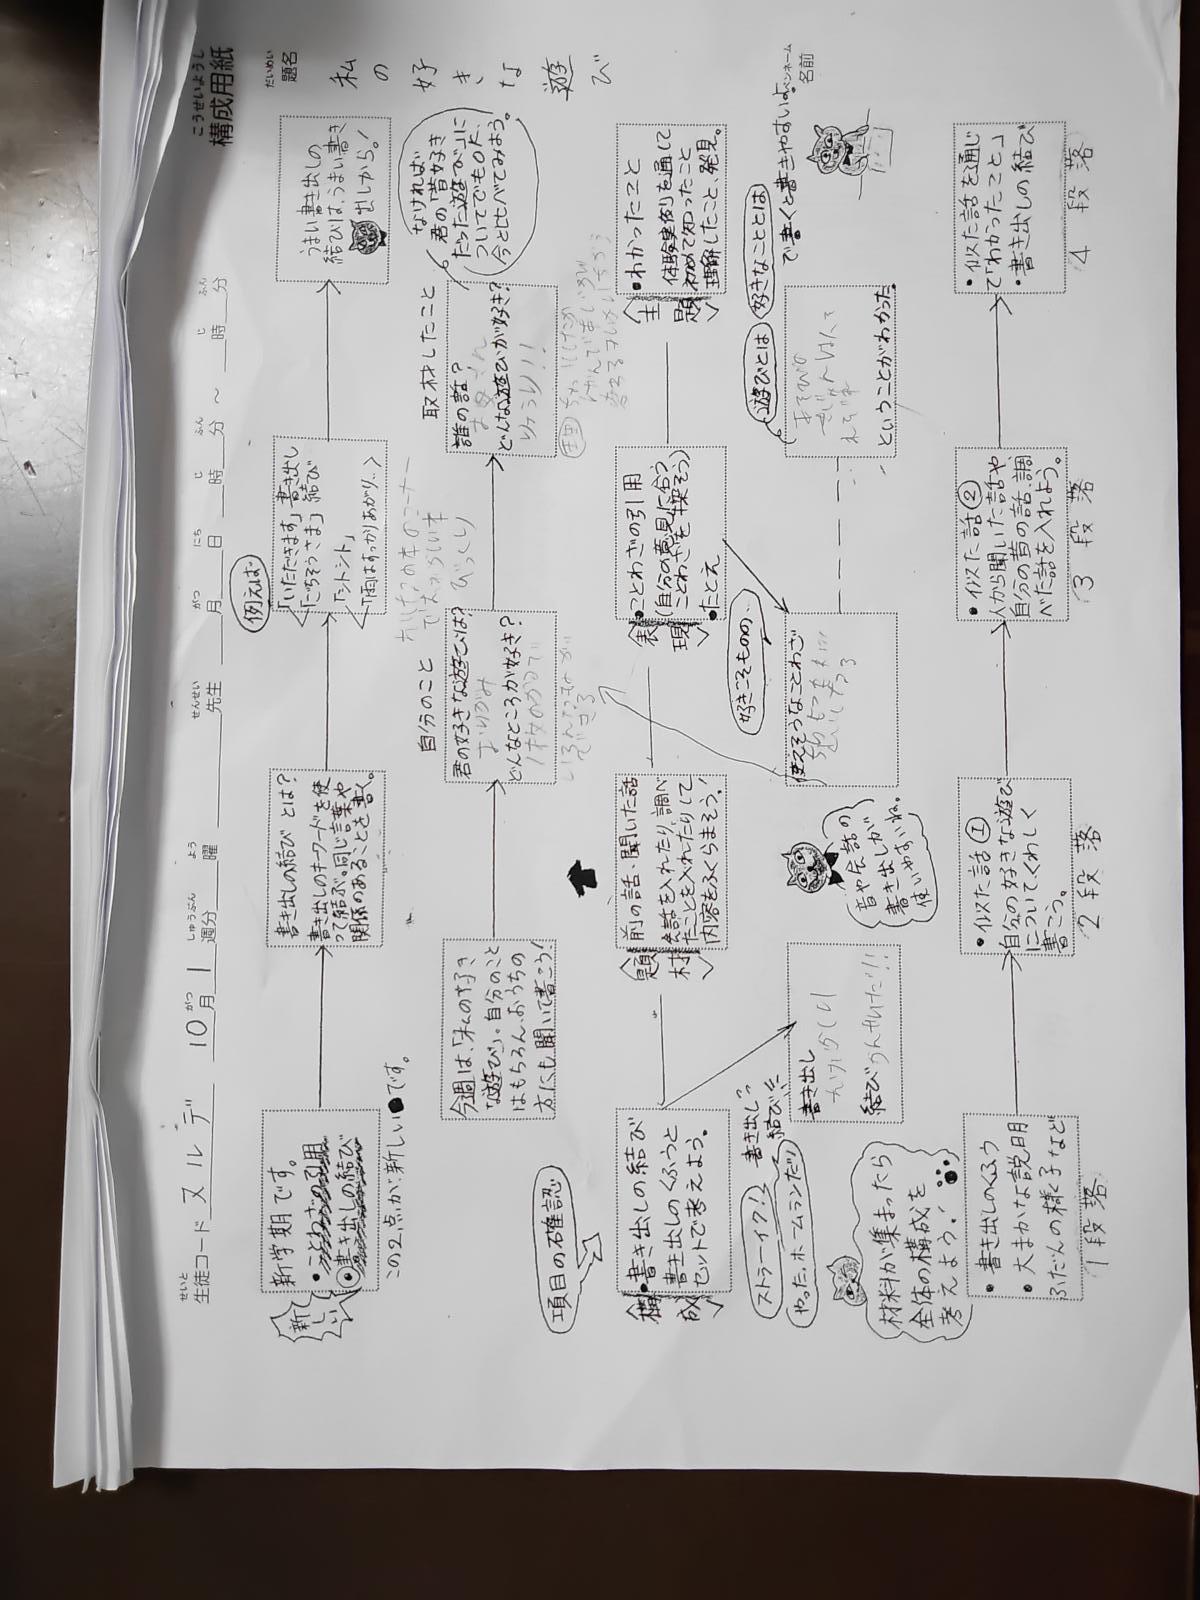 こうせいようし
構成用紙
せいと せんせい
生徒コード ヌルデ 10月1週分 曜 先生 月 日 時 分 ～ 時 分
だいめい
題名
私の好きな遊び
ペンネーム
名前
新しい
新学期です。
・ことわざの引用
・書き出しの結び
この2点が新しい●です。
書き出しの結びとは?
書き出しのキーワードを使
って結ぶ。同じ言葉や
関係のあることを書く。
例えば
「いただきます」書き出し
「ごちそうさま」結び
「シトシト」
「雨はすっかりあがり‥
うまい書き出しの
結びは、うまい書き
出しから。!
今週は、「私の好き
な遊び」。自分のこと
はもちろん、おうちの
方にも聞いて書こう!
自分のこと
君の好きな遊びは?
おりがみ
どんなところが好き?
取材したこと
誰の話?
どんな遊びが好き?
なければ
君の「昔好き
だった遊び」に
ついてでもOK。
今と比べてみよう。
びっくり
項目の確認
構成
・書き出しの結び
書き出しのくふうと
セットで考えよう。
題材
前の話・聞いた話
会話を入れたり、調べ
たことを入れたりして
内容をふくらまそう!
表現
・ことわざの引用
(自分の意見に合う
ことわざを探そう)
・たとえ
主題
・わかったこと
体験実例を通して
初めて知ったこと
理解したこと、発見。
ストラーイク!!
書き出し?
やった、ホームランだ!
結び!!
書き出し
結び
音や会話の
書き出しが
使いやすいね。
好きこそものの、
使えそうなことわざ
遊びとは
好きなこととは
で書くと書きやすいよ。
ということがわかった
材料が集まったら
全体の構成を
考えよう!
・書き出しのくふう
・大まかな説明
ふだんの様子など
1段落
・似た話①
自分の好きな遊び
についてくわしく
書こう。
2段落
・似た話②
人から聞いた話や
自分の昔の話、調
べた話を入れよう。
3段落
・似た話を通じ
て「わかったこと」
・書き出しの結び
4段落